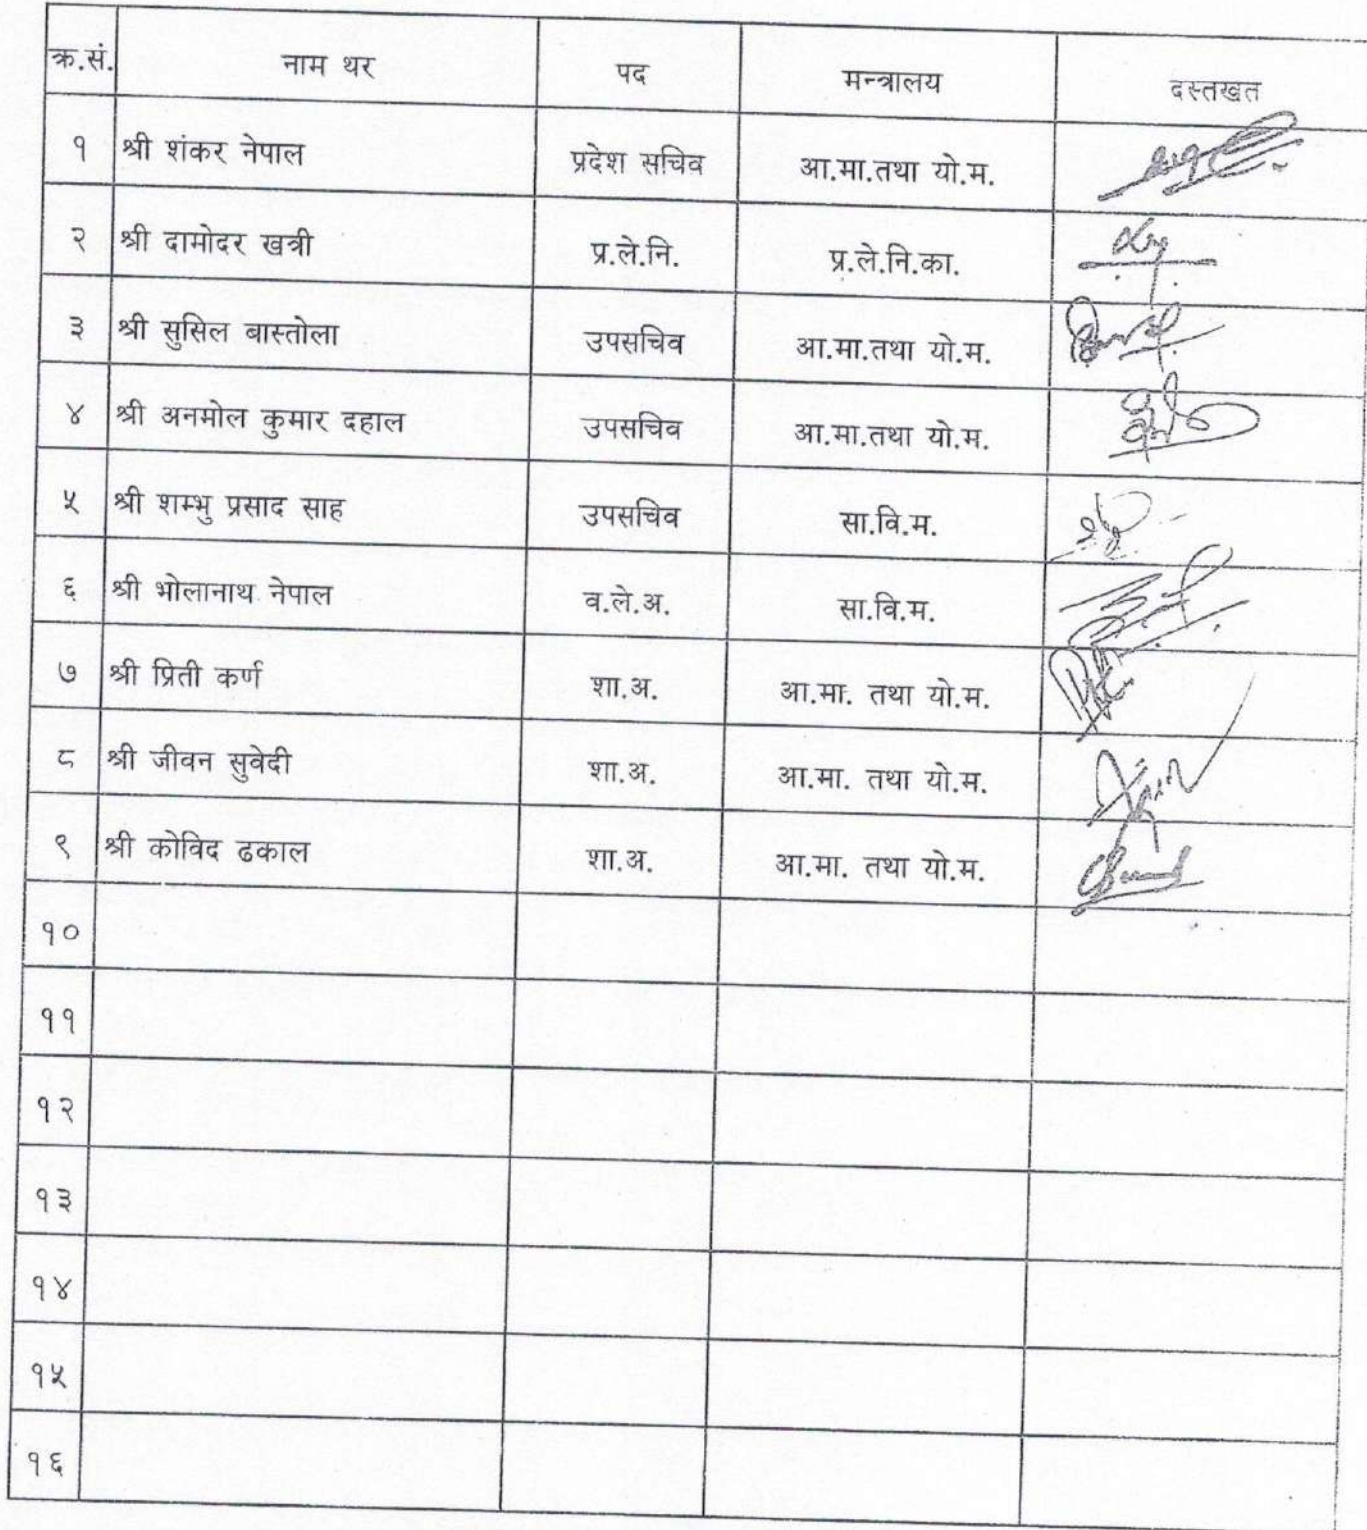 क्र.सं. नाम थर पद मन्त्रालय दस्तखत
१ श्री शंकर नेपाल प्रदेश सचिव आ.मा.तथा यो.म.
२ श्री दामोदर खत्री प्र.ले.नि. प्र.ले.नि.का.
३ श्री सुसिल बास्तोला उपसचिव आ.मा.तथा यो.म.
४ श्री अनमोल कुमार दहाल उपसचिव आ.मा.तथा यो.म.
५ श्री शम्भु प्रसाद साह उपसचिव सा.वि.म.
६ श्री भोलानाथ नेपाल व.ले.अ. सा.वि.म.
७ श्री प्रिती कर्ण शा.अ. आ.मा. तथा यो.म.
८ श्री जीवन सुवेदी शा.अ. आ.मा. तथा यो.म.
९ श्री कोविद ढकाल शा.अ. आ.मा. तथा यो.म.
१०
११
१२
१३
१४
१५
१६